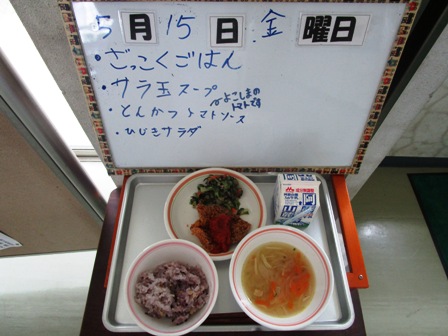 5月15日 金曜日
・ざっこくごはん
・サラ玉スープ
よこしまの
トマトです
・とんかつトマトソース
・ひじきサラダ